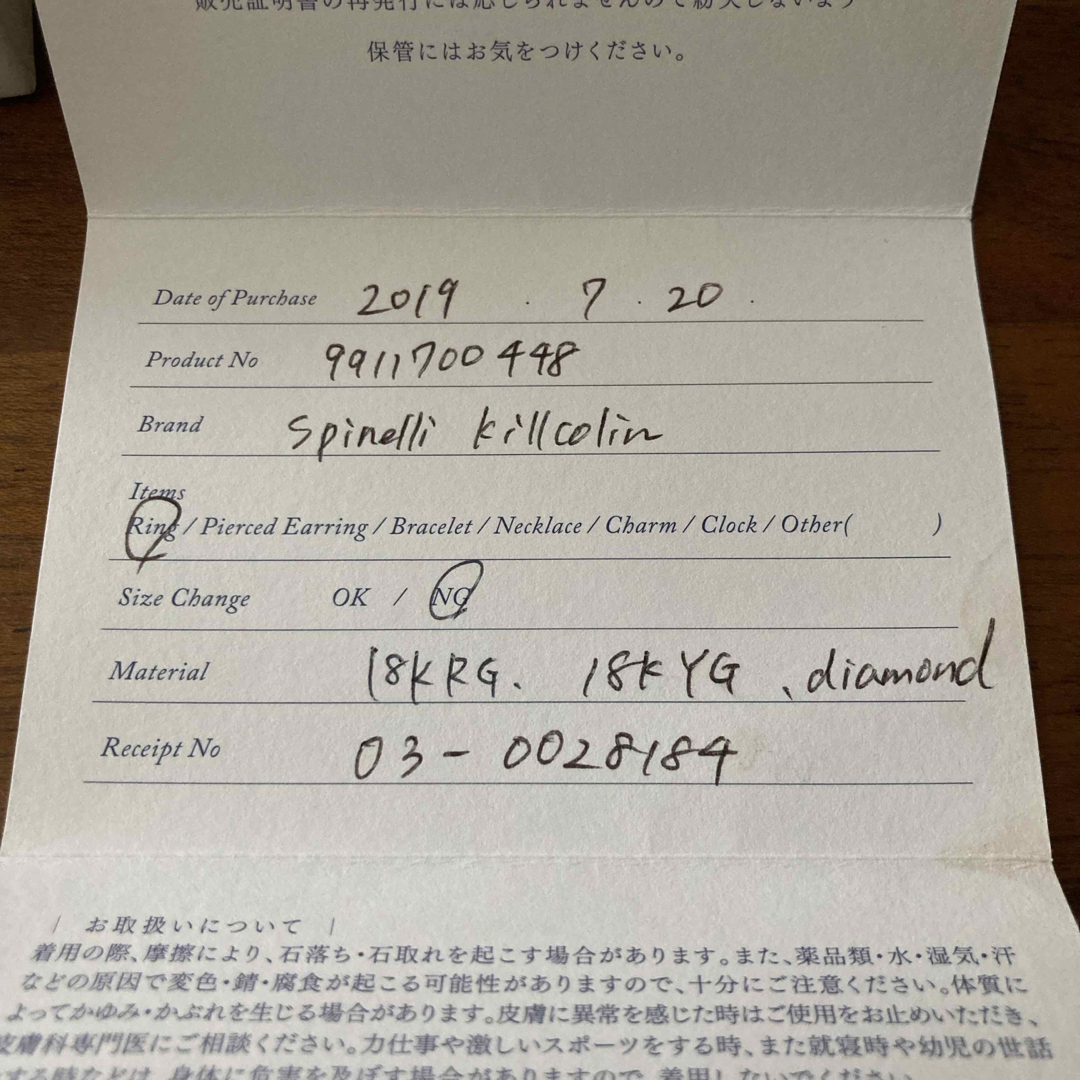 販売証明書の再発行には応じられませんので紛失しないよう
保管にはお気をつけください。
Date of Purchase 2019 . 7 . 20 .
Product No 9911700448
Brand Spinelli killcolin
Items
Ring / Pierced Earring / Bracelet / Necklace / Charm / Clock / Other( )
Size Change OK / NO
Material 18KRG、 18KYG 、diamond
Receipt No 03-0028184
| お取扱いについて |
着用の際、摩擦により、石落ち・石取れを起こす場合があります。また、薬品類・水・湿気・汗
などの原因で変色・錆・腐食が起こる可能性がありますので、十分にご注意ください。体質に
よってかゆみ・かぶれを生じる場合があります。皮膚に異常を感じた時はご使用をお止めいただき、
皮膚科専門医にご相談ください。力仕事や激しいスポーツをする時、また就寝時や幼児の世話
する時などは、身体に危害を及ぼす場合がありますので、着用しないでください。